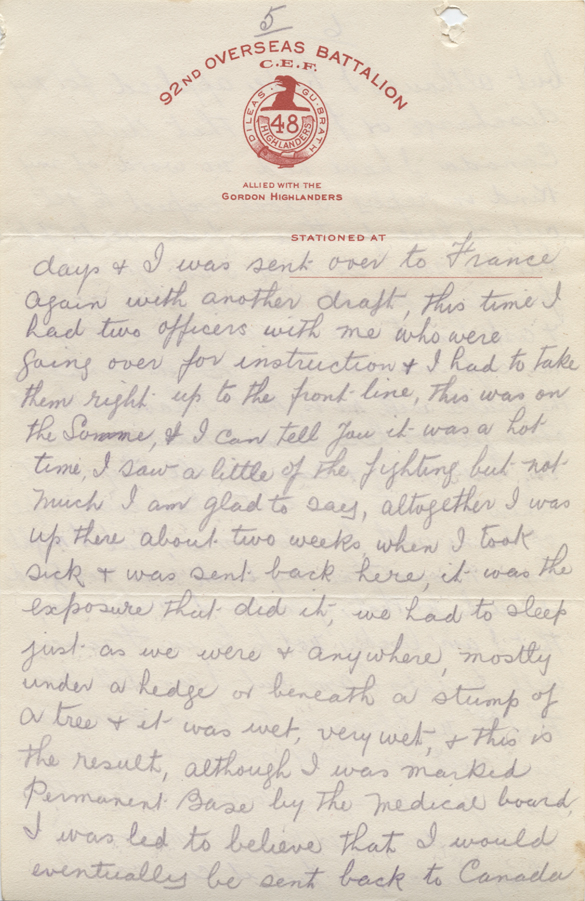 5
92ND OVERSEAS BATTALION
C.E.F.
DILEAS GU BRATH
48
HIGHLANDERS
ALLIED WITH THE
GORDON HIGHLANDERS
STATIONED AT
days & I was sent over to France
again with another draft, this time I
had two officers with me who were
going over for instruction & I had to take
them right up to the front line, this was on
the Somme, & I can tell you it was a hot
time, I saw a little of the fighting but not
much I am glad to say, altogether I was
up there about two weeks, when I took
sick & was sent back here, it was the
exposure that did it, we had to sleep
just as we were & anywhere, mostly
under a hedge or beneath a stump of
a tree & it was wet, very wet, & this is
the result, although I was marked
Permanent Base by the medical board,
I was led to believe that I would
eventually be sent back to Canada